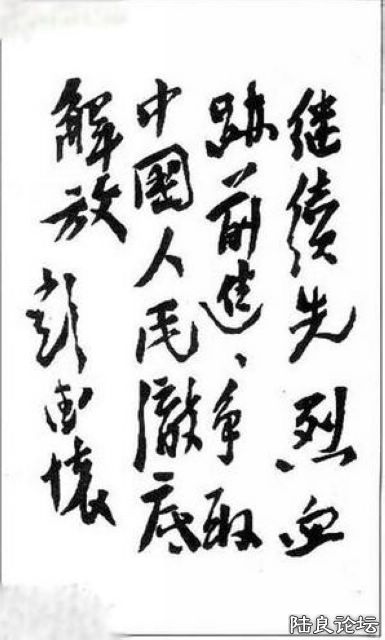 继续先烈血
跡前进、争取
中國人民澈底
解放 彭德懷
陆良论坛